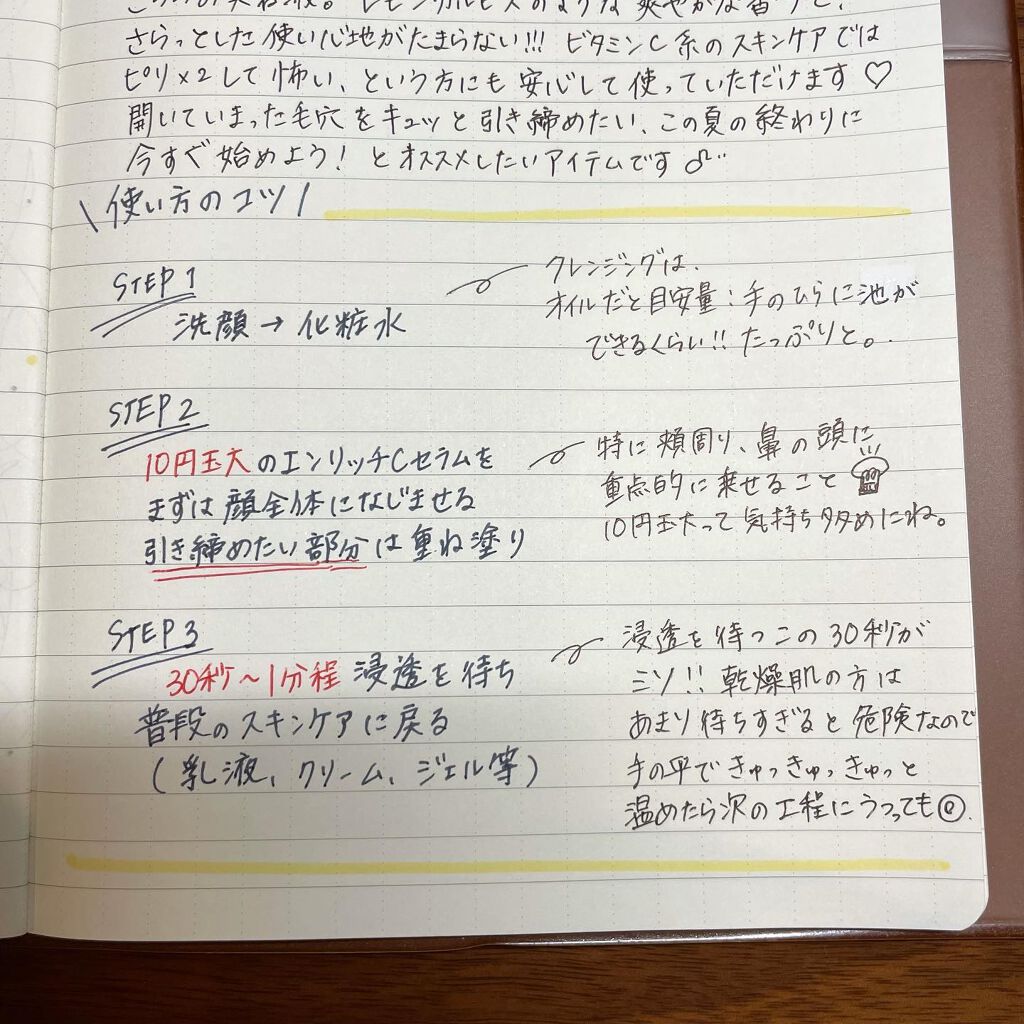 レモンカルピスのような爽やかな香りと、
さらっとした使い心地がたまらない!!! ビタミンC系のスキンケアでは
ピリ×2して怖い、という方にも安心して使っていただけます♡
開いていまった毛穴をキュッと引き締めたい、この夏の終わりに
今すぐ始めよう! とオススメしたいアイテムです♂¨
\ 使い方のコツ /
STEP 1
洗顔→化粧水
クレンジングは、
オイルだと目安量:手のひらに池が
できるくらい!! たっぷりと。
STEP 2
10円玉大のエンリッチCセラムを
まずは顔全体になじませる
引き締めたい部分は重ね塗り
特に頬周り、鼻の頭に
重点的に乗せること
10円玉大って気持ち多めにね。
STEP 3
30秒〜1分程 浸透を待ち
普段のスキンケアに戻る
(乳液、クリーム、ジェル等)
浸透を待つこの30秒が
ミソ!! 乾燥肌の方は
あまり待ちすぎると危険なので
手の平できゅっきゅっきゅっと
温めたら次の工程にうつっても◎.